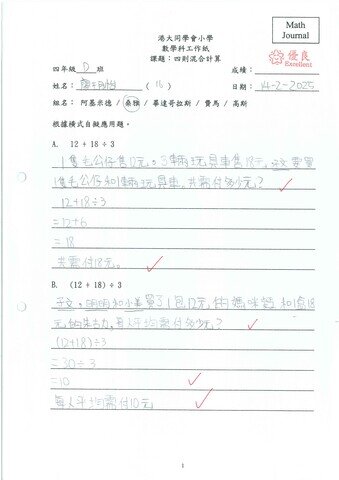 Math
Journal
港大同學會小學
數學科工作紙
課題：四則混合計算
優良
Excellent
四年級 D 班
成績：
姓名： (16)
日期： 14-2-2025
組名： 阿基米德 / 桑雅 / 畢達哥拉斯 / 費馬 / 高斯
根據橫式自擬應用題。
A. 12 + 18 ÷ 3
1隻毛公仔售12元。3輛玩具車售18元，子文要買
1隻毛公仔和1輛玩具車，共需付多少元？
12+18÷3
=12+6
=18
共需付18元。
B. (12 + 18) ÷ 3
子文、明明和小美買了1包12元的 和1盒18
元的朱古力，每人平均需付多少元？
(12+18)÷3
=30÷3
=10
每人平均需付10元
1